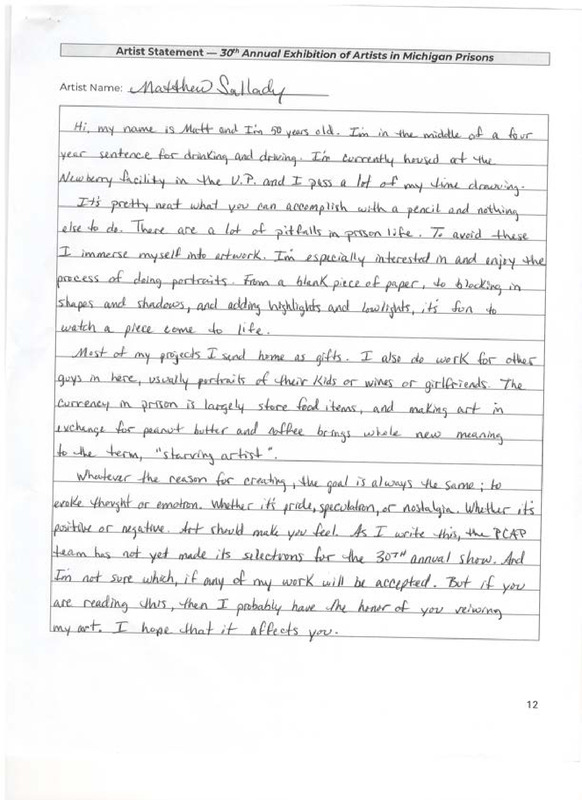 Artist Statement — 30th Annual Exhibition of Artists in Michigan Prisons
Artist Name: Matthew Sallady
Hi, my name is Matt and I'm 50 years old. I'm in the middle of a four
year sentence for drinking and driving. I'm currently housed at the
Newberry facility in the U.P. and I pass a lot of my time drawing.
It's pretty neat what you can accomplish with a pencil and nothing
else to do. There are a lot of pitfalls in prison life. To avoid these
I immerse myself into artwork. I'm especially interested in and enjoy the
process of doing portraits. From a blank piece of paper, to blocking in
shapes and shadows, and adding highlights and lowlights, it's fun to
watch a piece come to life.
Most of my projects I send home as gifts. I also do work for other
guys in here, usually portraits of their kids or wives or girlfriends. The
currency in prison is largely store food items, and making art in
exchange for peanut butter and coffee brings whole new meaning
to the term, "starving artist".
Whatever the reason for creating, the goal is always the same; to
evoke thought or emotion. Whether it's pride, speculation, or nostalgia. Whether it's
positive or negative. Art should make you feel. As I write this, the PCAP
team has not yet made its selections for the 30TH annual show. And
I'm not sure which, if any of my work will be accepted. But if you
are reading this, then I probably have the honor of you veiwing
my art. I hope that it affects you.
12